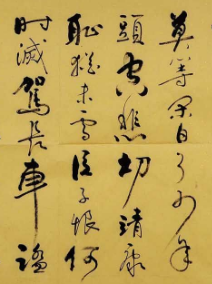 莫等閒白了少年
頭空悲切靖康
恥猶未雪臣子恨何
時滅駕長車踏